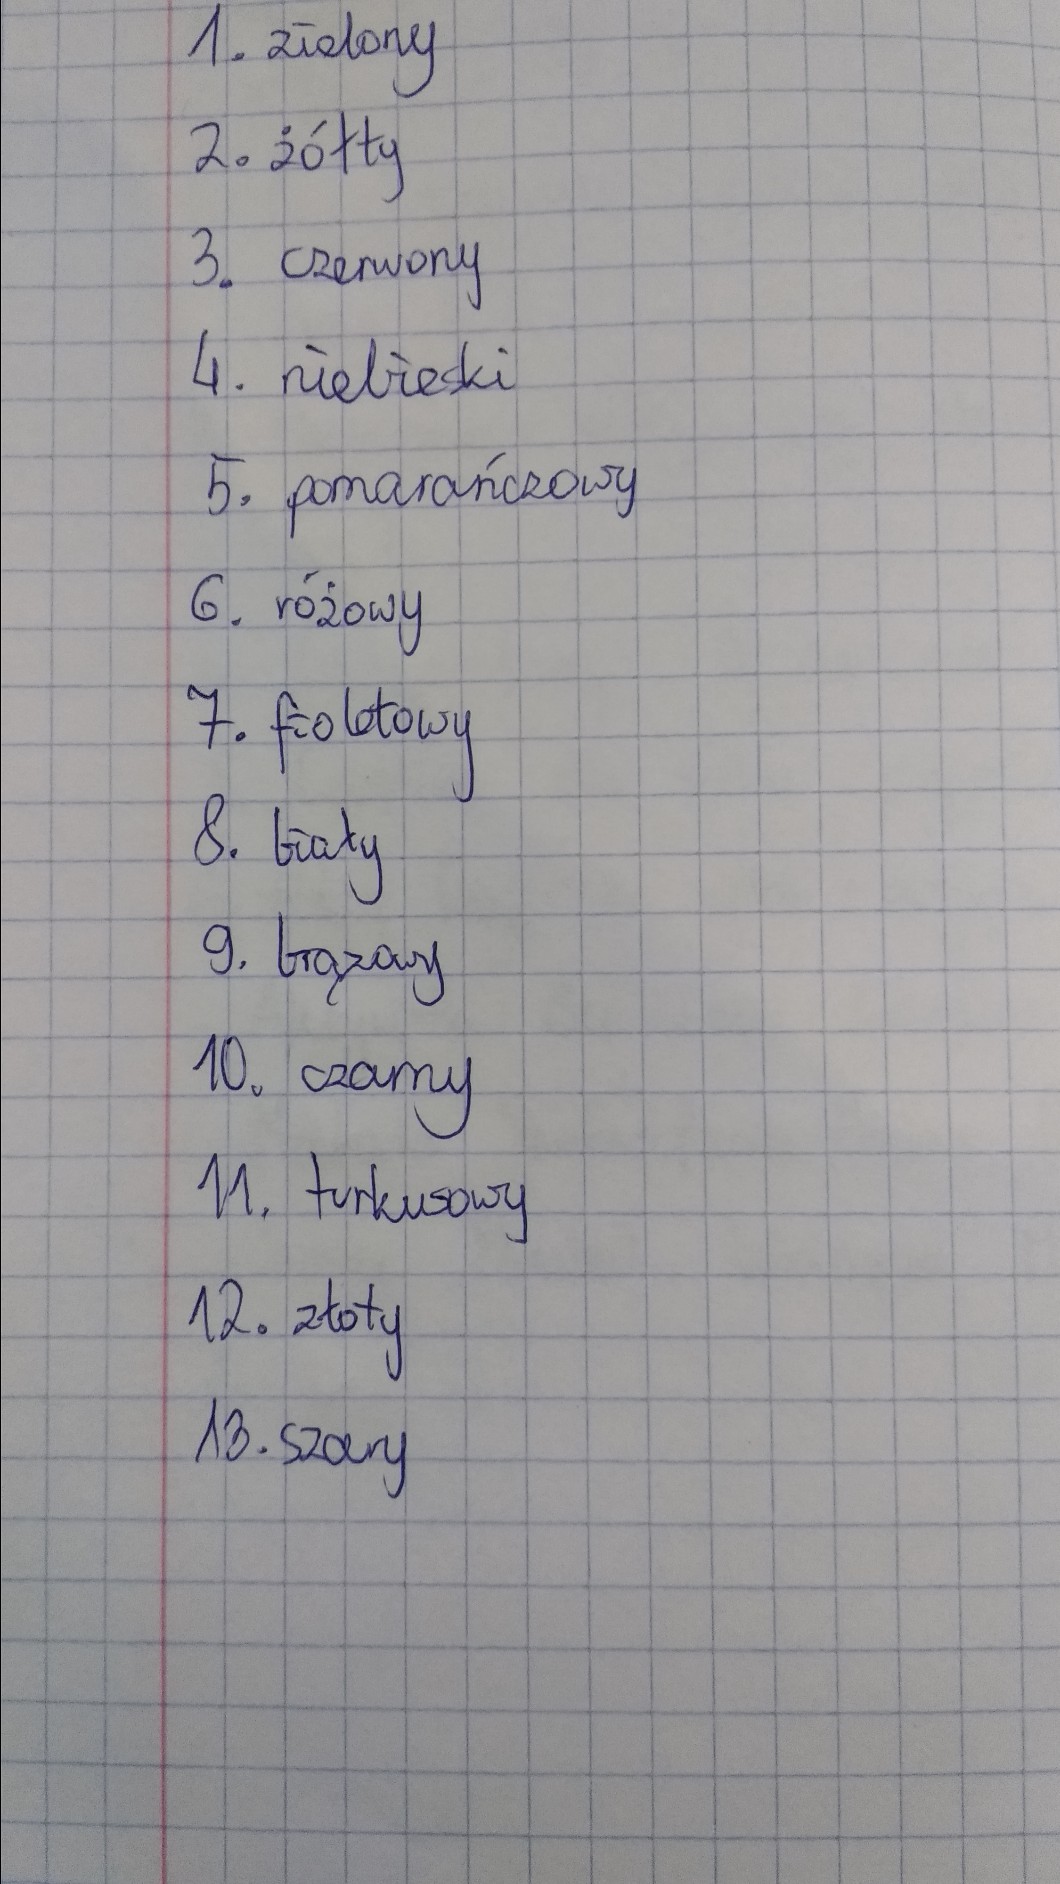 1. zielony
2. żółty
3. czerwony
4. niebieski
5. pomarańczowy
6. różowy
7. fioletowy
8. biały
9. brązowy
10. czarny
11. turkusowy
12. złoty
13. szary